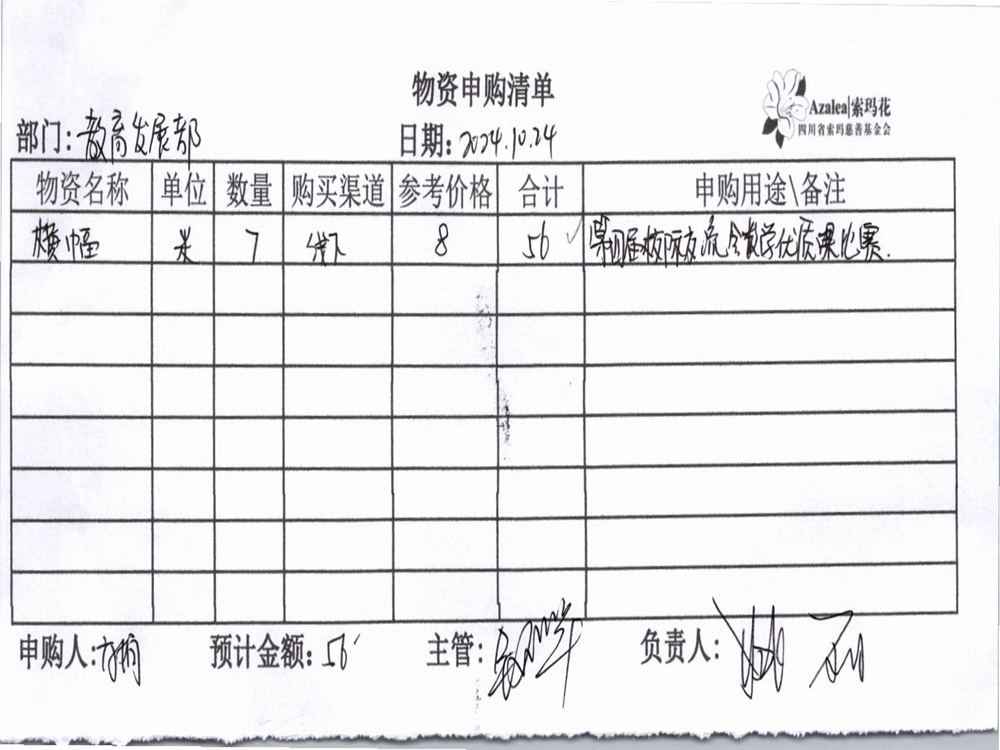 物资申购清单
Azalea|索玛花
四川省索玛慈善基金会
部门:教育发展部 日期:2024.10.24
物资名称 单位 数量 购买渠道 参考价格 合计 申购用途\备注
横幅 米 7 线下 8 56 ✓ 第四届 优质课比赛.
申购人: 预计金额:56 主管: 负责人: